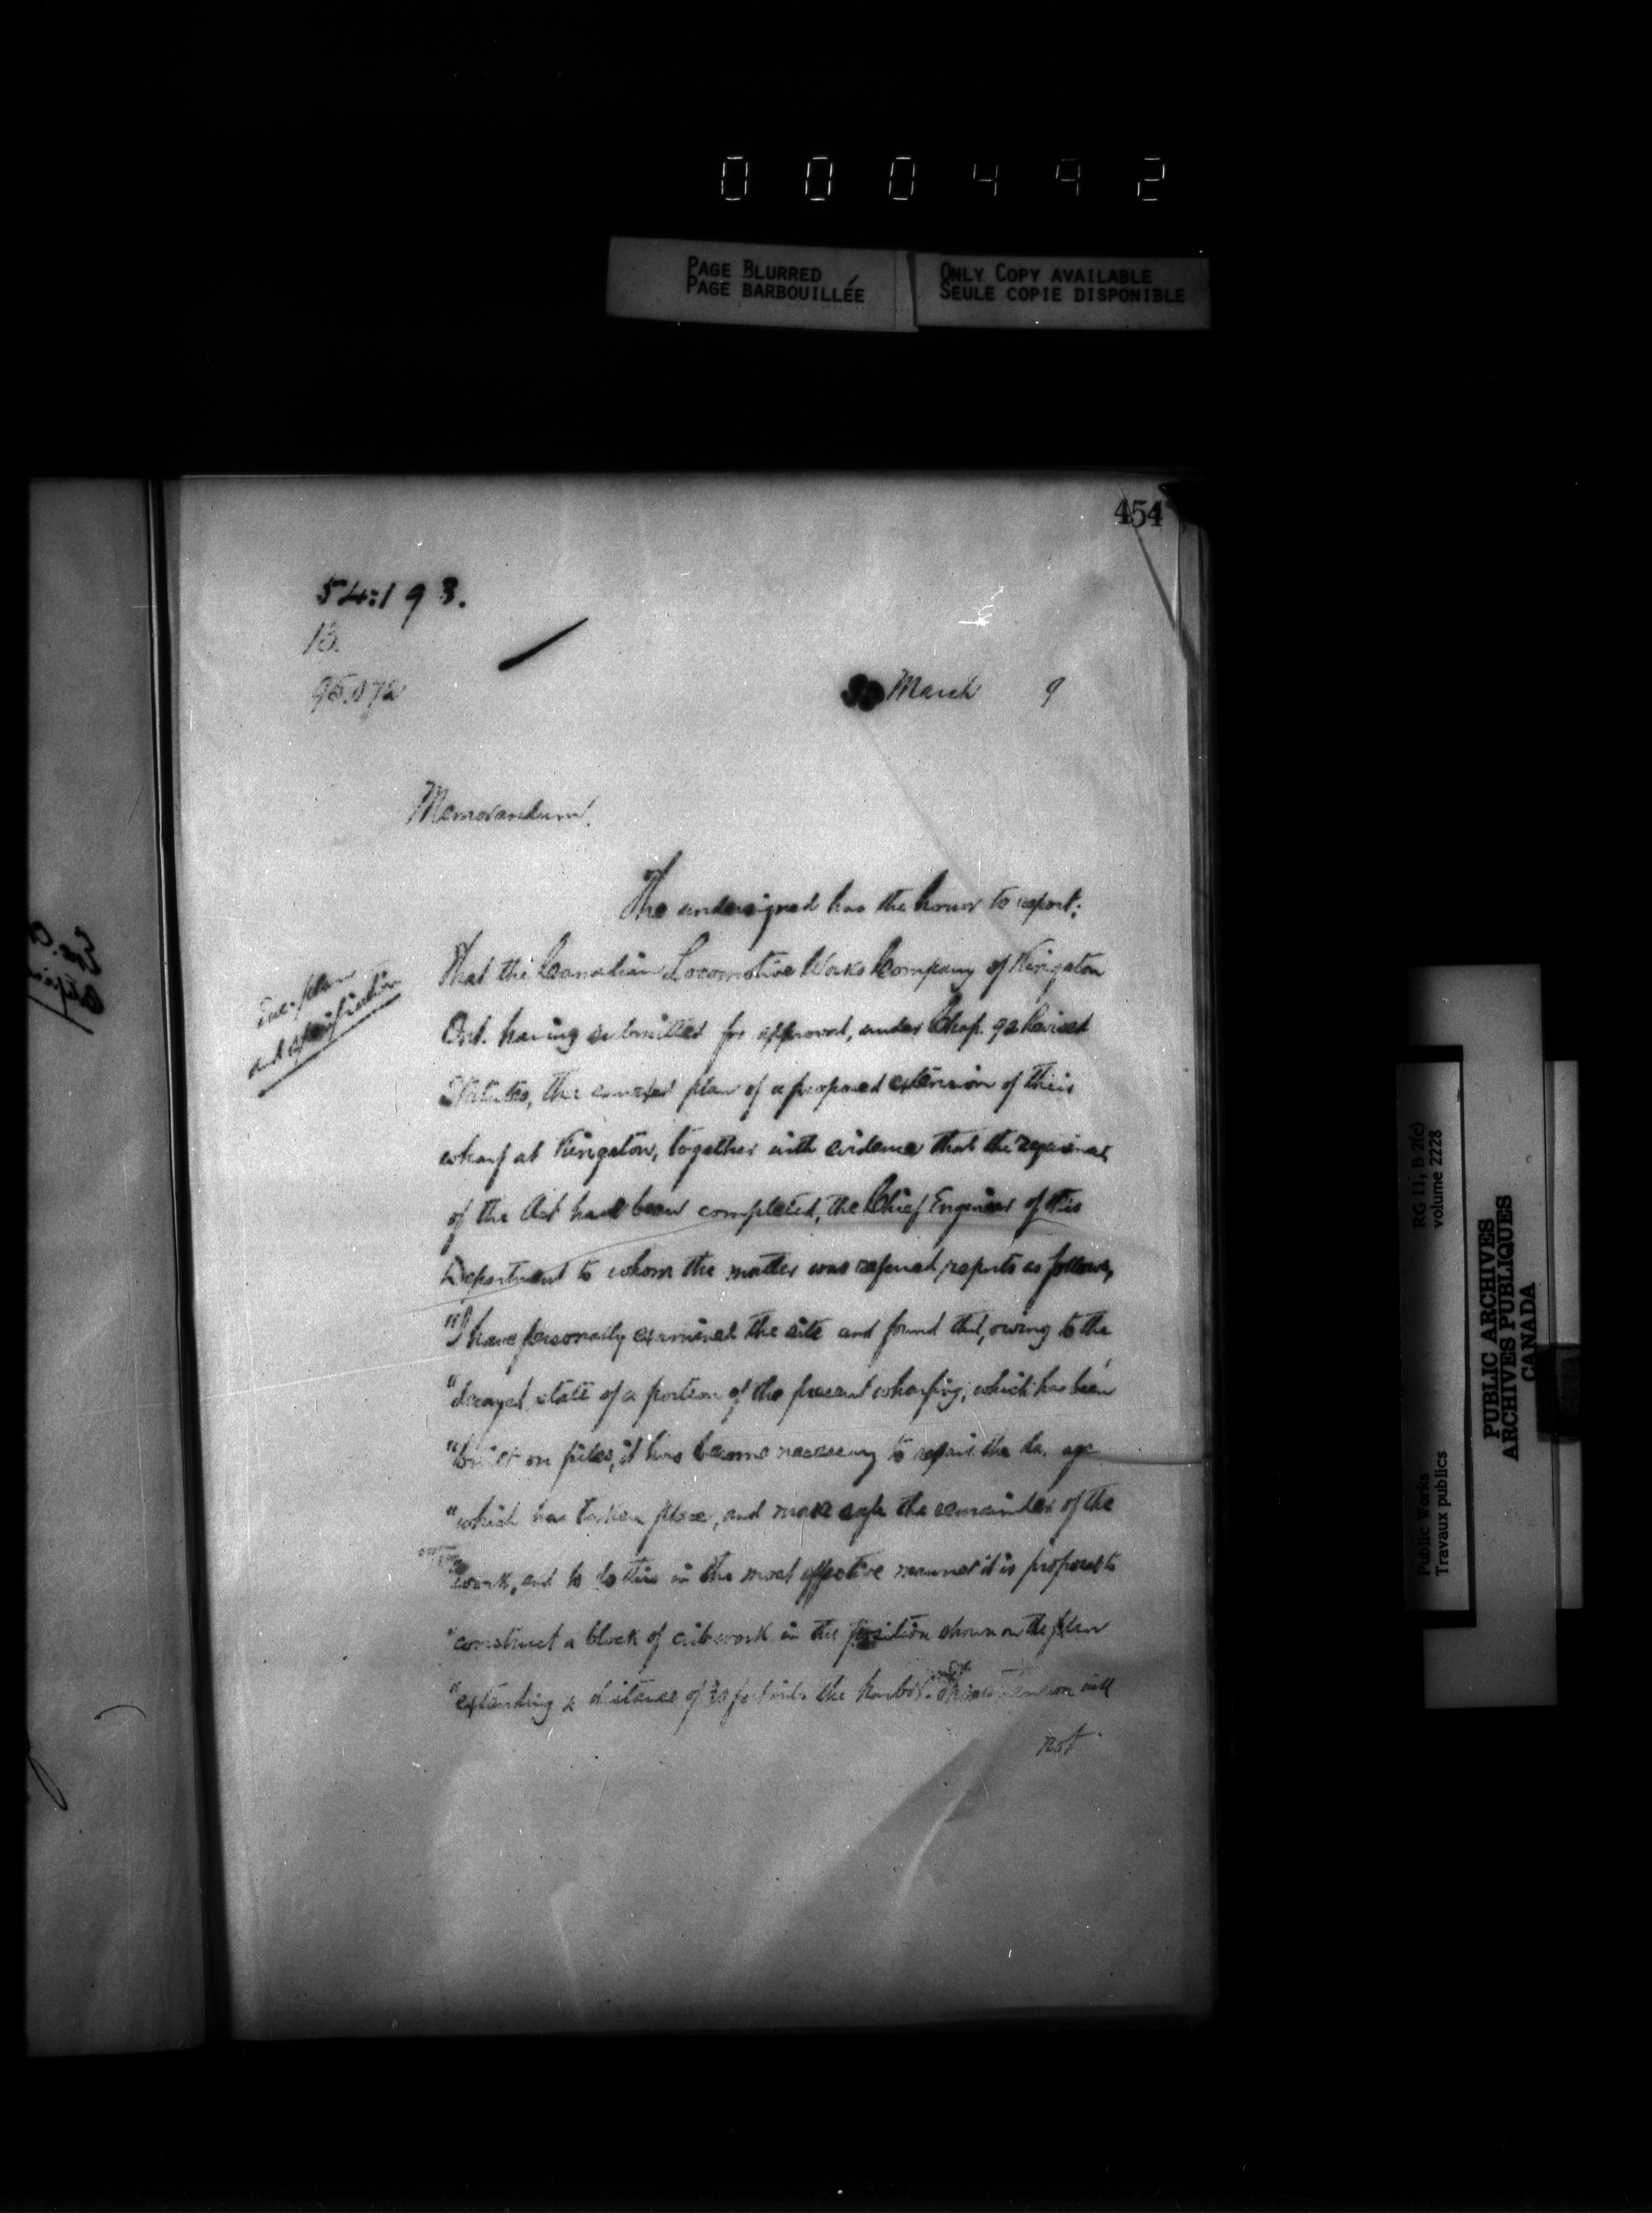 000492
PAGE BLURRED
PAGE BARBOUILLÉE
ONLY COPY AVAILABLE
SEULE COPIE DISPONIBLE
454
54:193.
13.
95.072
March 9
Memorandum.
The undersigned has the honor to report;
That the Canadian Locomotive Works Company of Kingston
Ont. having submitted for approval, under Chap. 92 Revised
Statutes, the annexed plan of a proposed extension of their
wharf at Kingston, together with evidence that the
of the Act have been completed, the Chief Engineer of this
Department to whom the matter was referred, reports as follows,
"I have personally examined the site and found that, owing to the
"decayed state of a portion of the present wharfing, which has been
"built on piles, it has become necessary to repair the
"which has taken place, and make safe the remainder of the
"work, and to do this in the most effective manner it is proposed to
"construct a block of cribwork in the position shown on the plan
"extending a distance of feet into the harbor. This extension will
not
plan
and specification
RG 11, B 2(c)
volume 2228
Public Works
Travaux publics
PUBLIC ARCHIVES
ARCHIVES PUBLIQUES
CANADA